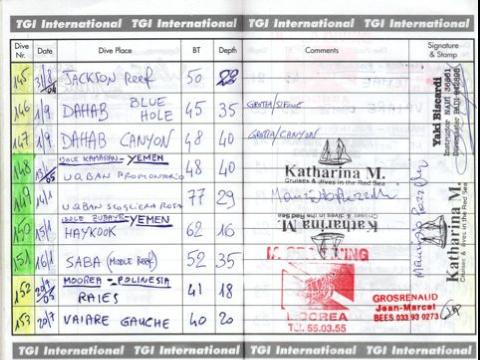 TGI International TGI International TGI International TGI International
Dive Nr. Date Dive Place BT Depth Comments Signature & Stamp
145 31/8 JACKSON Reef 50 22
146 1/9 DAHAB BLUE HOLE 45 35 GROTTA/SIFONE
147 1/9 DAHAB CANYON 48 40 GROTTA/CANYON
148 YEMEN
UQBAN PROMONTORIO 48 40
149 14/1 UQBAN SCOGLIERA ROSA 77 29
ISOLE ZUBAYR - YEMEN
150 15/1 HAYKOOK 62 16
151 16/1 SABA (MIDDLE Reef) 52 35
MOOREA - POLINESIA
152 20/7 RAIES 41 18
153 20/7 VAIARE GAUCHE 40 20
Katharina M.
Cruises & dives in the Red Sea
Katharina M.
Cruises & dives in the Red Sea
Katharina M.
Cruises & dives in the Red Sea
Yaki Biscardi
MOOREA
TEL. 56.03.55
GROSRENAUD
Jean-Marcel
BEES 033 93 0273
TGI International TGI International TGI International TGI International